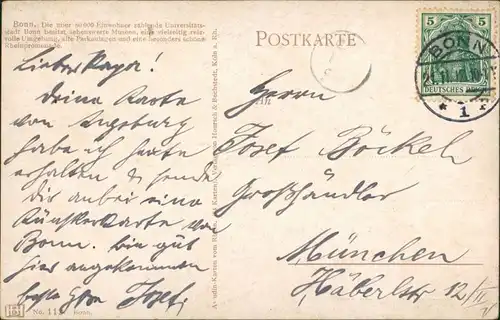 Bonn. Die über 90 000 Einwohner zählende Universitäts-
stadt Bonn besitzt sehenswerte Museen, eine vielseitig reiz-
volle Umgebung, alte Parkanlagen und eine besonders schöne
Rheinpromenade.
POSTKARTE
5 5
BONN
DEUTSCHES REICH
* 1 *
Lieber Papa!
Deine Karte
von Augsburg
habe ich heute
erhalten & sende
Dir anbei eine
Künstlerkarte von
Bonn. Bin gut
hier angekommen
beste Josef.
Herrn
Josef Böckel
Großhändler
München
Häberlstr 12/
No. 11 Bonn.
Hoursch & Bechstedt, Köln a. Rh.